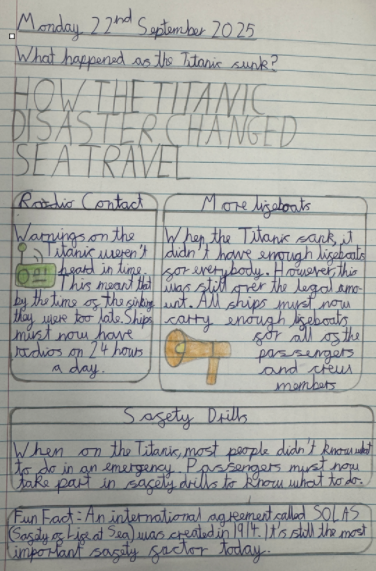 Monday 22nd September 2025
What happened as the Titanic sunk?
HOW THE TITANIC
DISASTER CHANGED
SEA TRAVEL
Radio Contact
Warnings on the
titanic weren't
heard in time.
This meant that
by the time of the sinking
they were too late. Ships
must now have
radios on 24 hours
a day.
More lifeboats
When the Titanic sank, it
didn't have enough lifeboats
for everybody. However, this
was still over the legal amo-
unt. All ships must now
carry enough lifeboats
for all of the
passengers
and crew
members
Safety Drills
When on the Titanic, most people didn't know what
to do in an emergency. Passengers must now
take part in safety drills to know what to do.
Fun Fact: An international agreement called SOLAS
(Safety of Life at Sea) was created in 1914. It's still the most
important safety factor today.